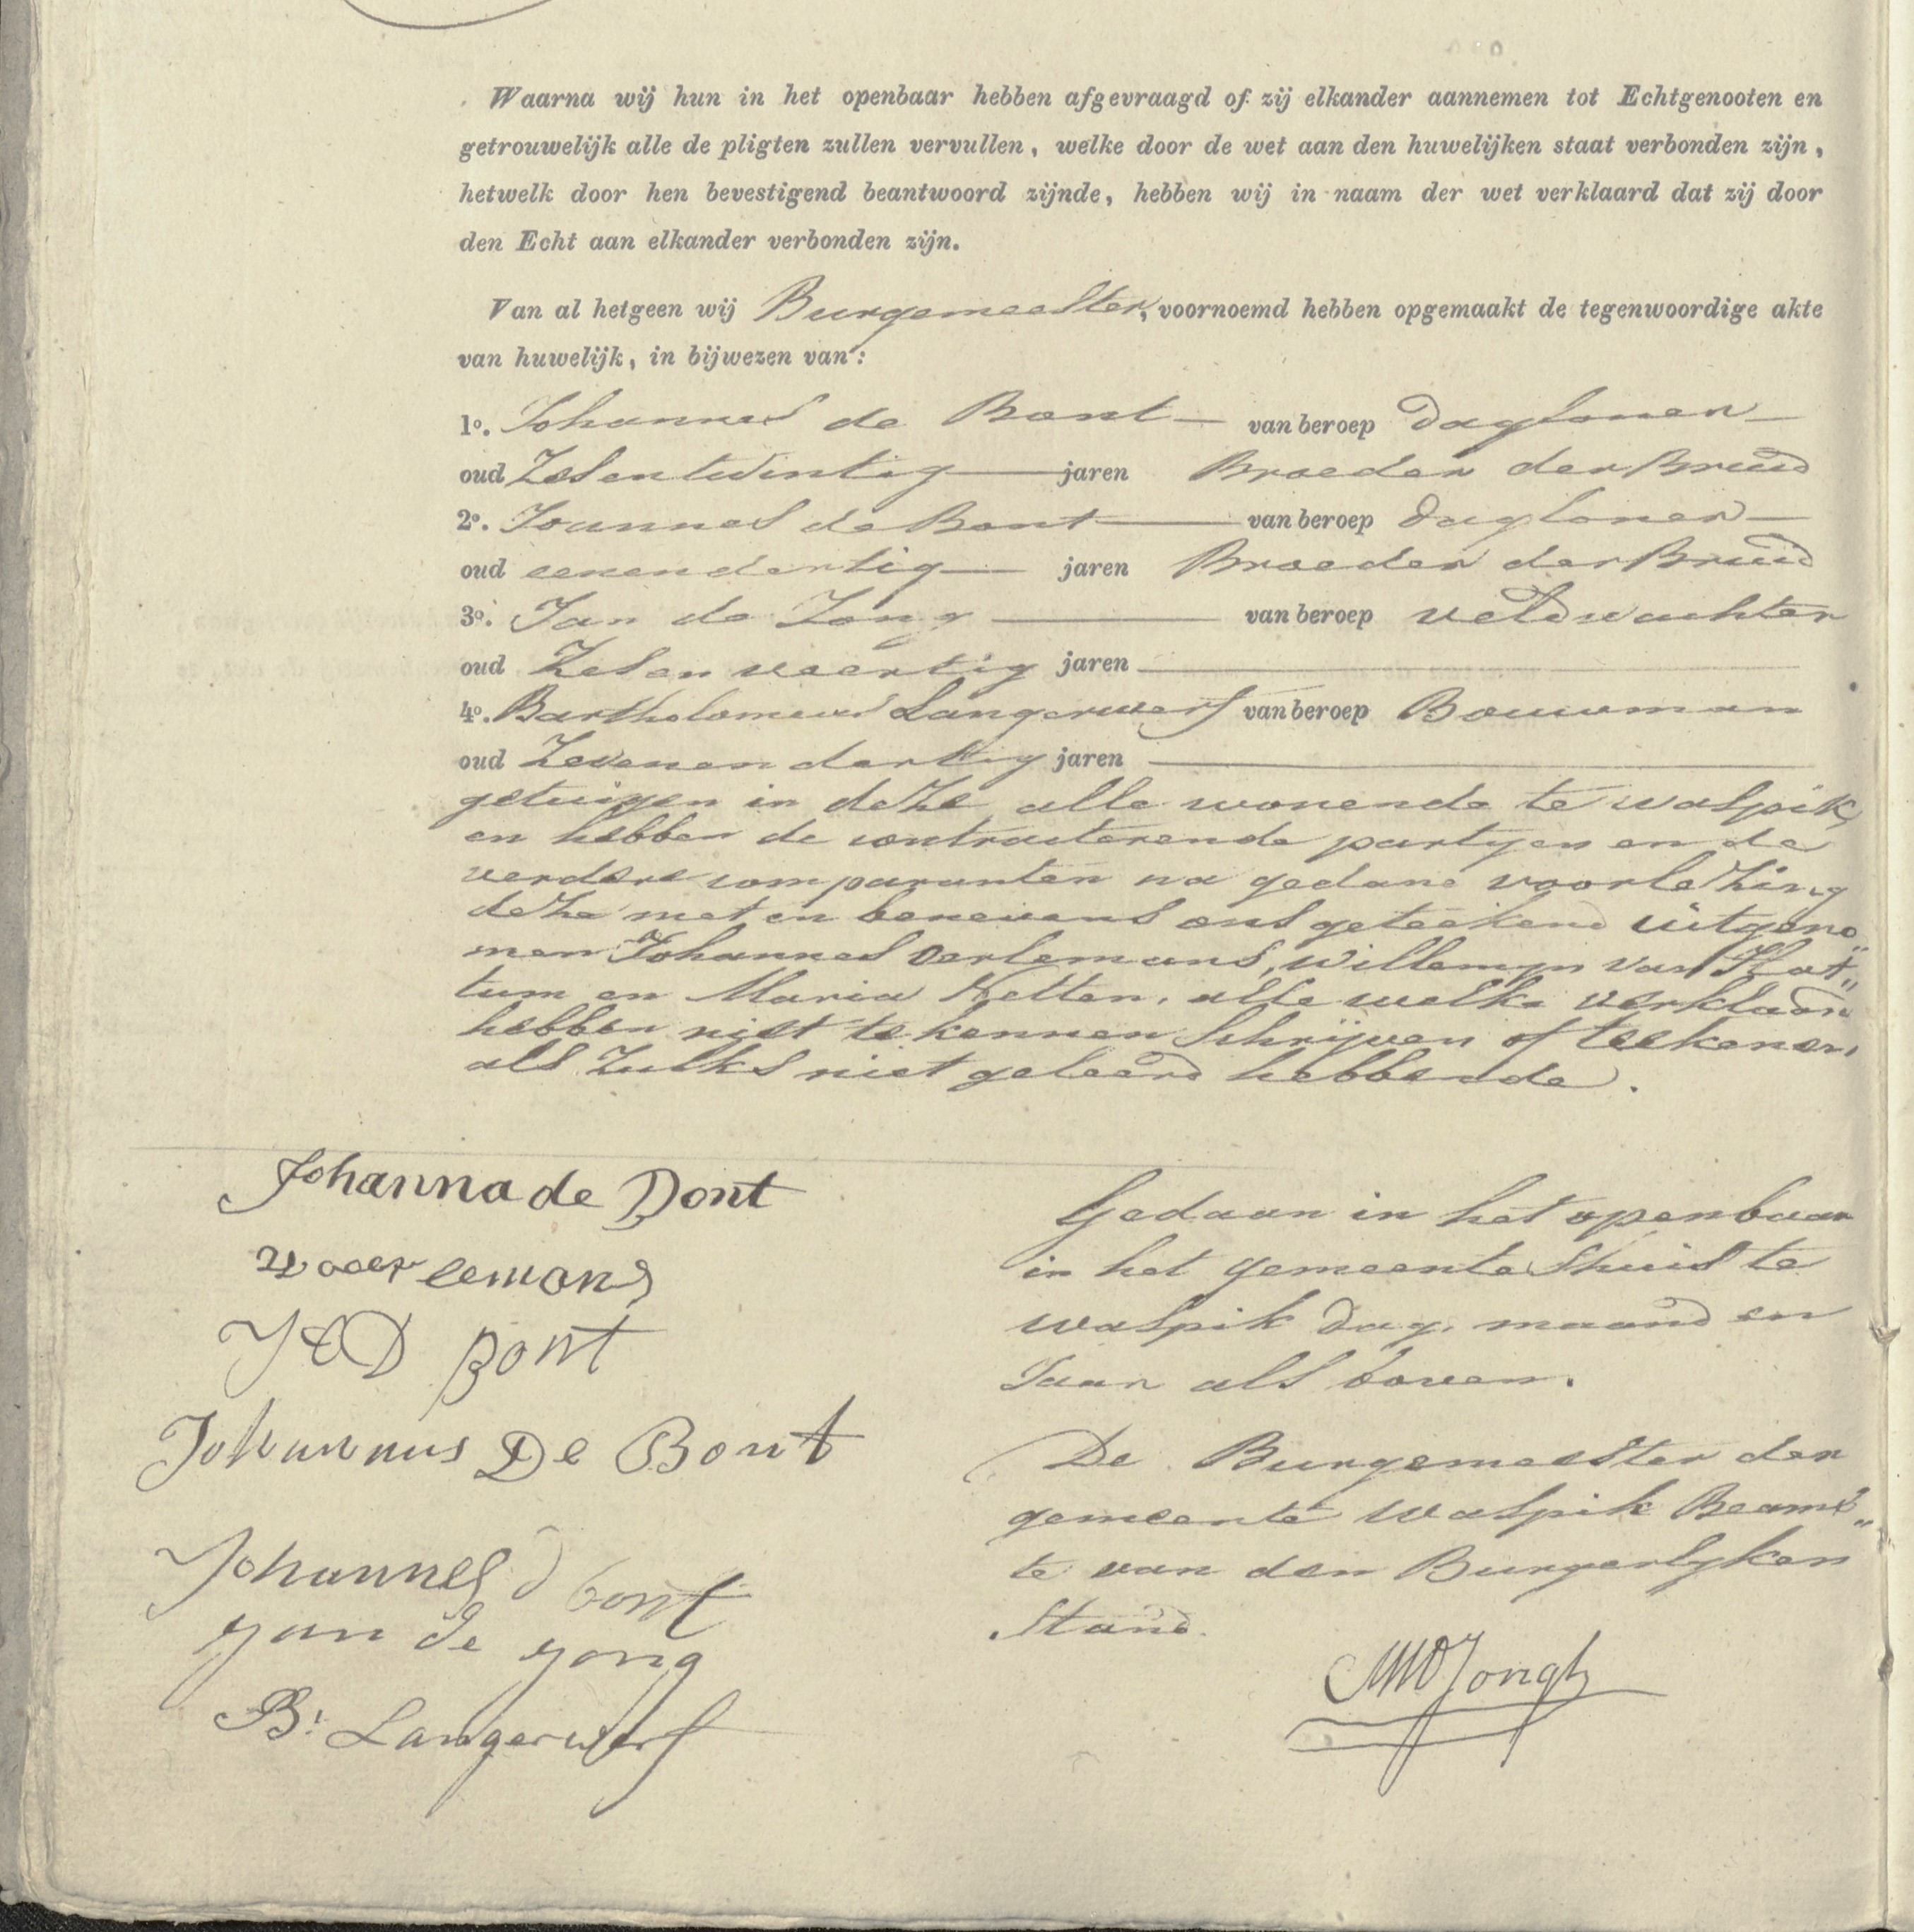 Waarna wij hun in het openbaar hebben afgevraagd of zij elkander aannemen tot Echtgenooten en
getrouwelijk alle de pligten zullen vervullen, welke door de wet aan den huwelijken staat verbonden zijn,
hetwelk door hen bevestigend beantwoord zijnde, hebben wij in naam der wet verklaard dat zij door
den Echt aan elkander verbonden zijn.
Van al hetgeen wij Burgemeester, voornoemd hebben opgemaakt de tegenwoordige akte
van huwelijk, in bijwezen van:
1o. Johannes de Bont van beroep dagloner
oud Zesentwintig jaren Broeder der Bruid
2o. Joannes de Bont van beroep dagloner
oud eenendertig jaren Broeder der Bruid
3o. Jan de Jong van beroep veldwachter
oud Zesenveertig jaren
4o. Bartholomeus Langerwerf van beroep Bouwman
oud Zevenendertig jaren
getuigen in deze, alle wonende te waspik,
en hebben de contracterende partyen en de
verdere comparanten na gedane voorlezing
deze met en benevens ons geteekend uitgeno„
men Johannes Oerlemans, willemyn van Hat„
tum en Maria Ketten, alle welke verklaard
hebben niet te kennen schrijven of teekenen,
als Zulks niet geleerd hebbende.
Johanna de Bont
oerlemans
J D Bont
Johannus De Bont
Johannes d bont
yan de yong
B: Langerwerf
Gedaan in het openbaar
in het gemeentes huis te
waspik dag, maand en
Jaar als boven.
De Burgemeester der
gemeente Waspik Beamb„
te van den Burgerlyken
Stand.
Jongh